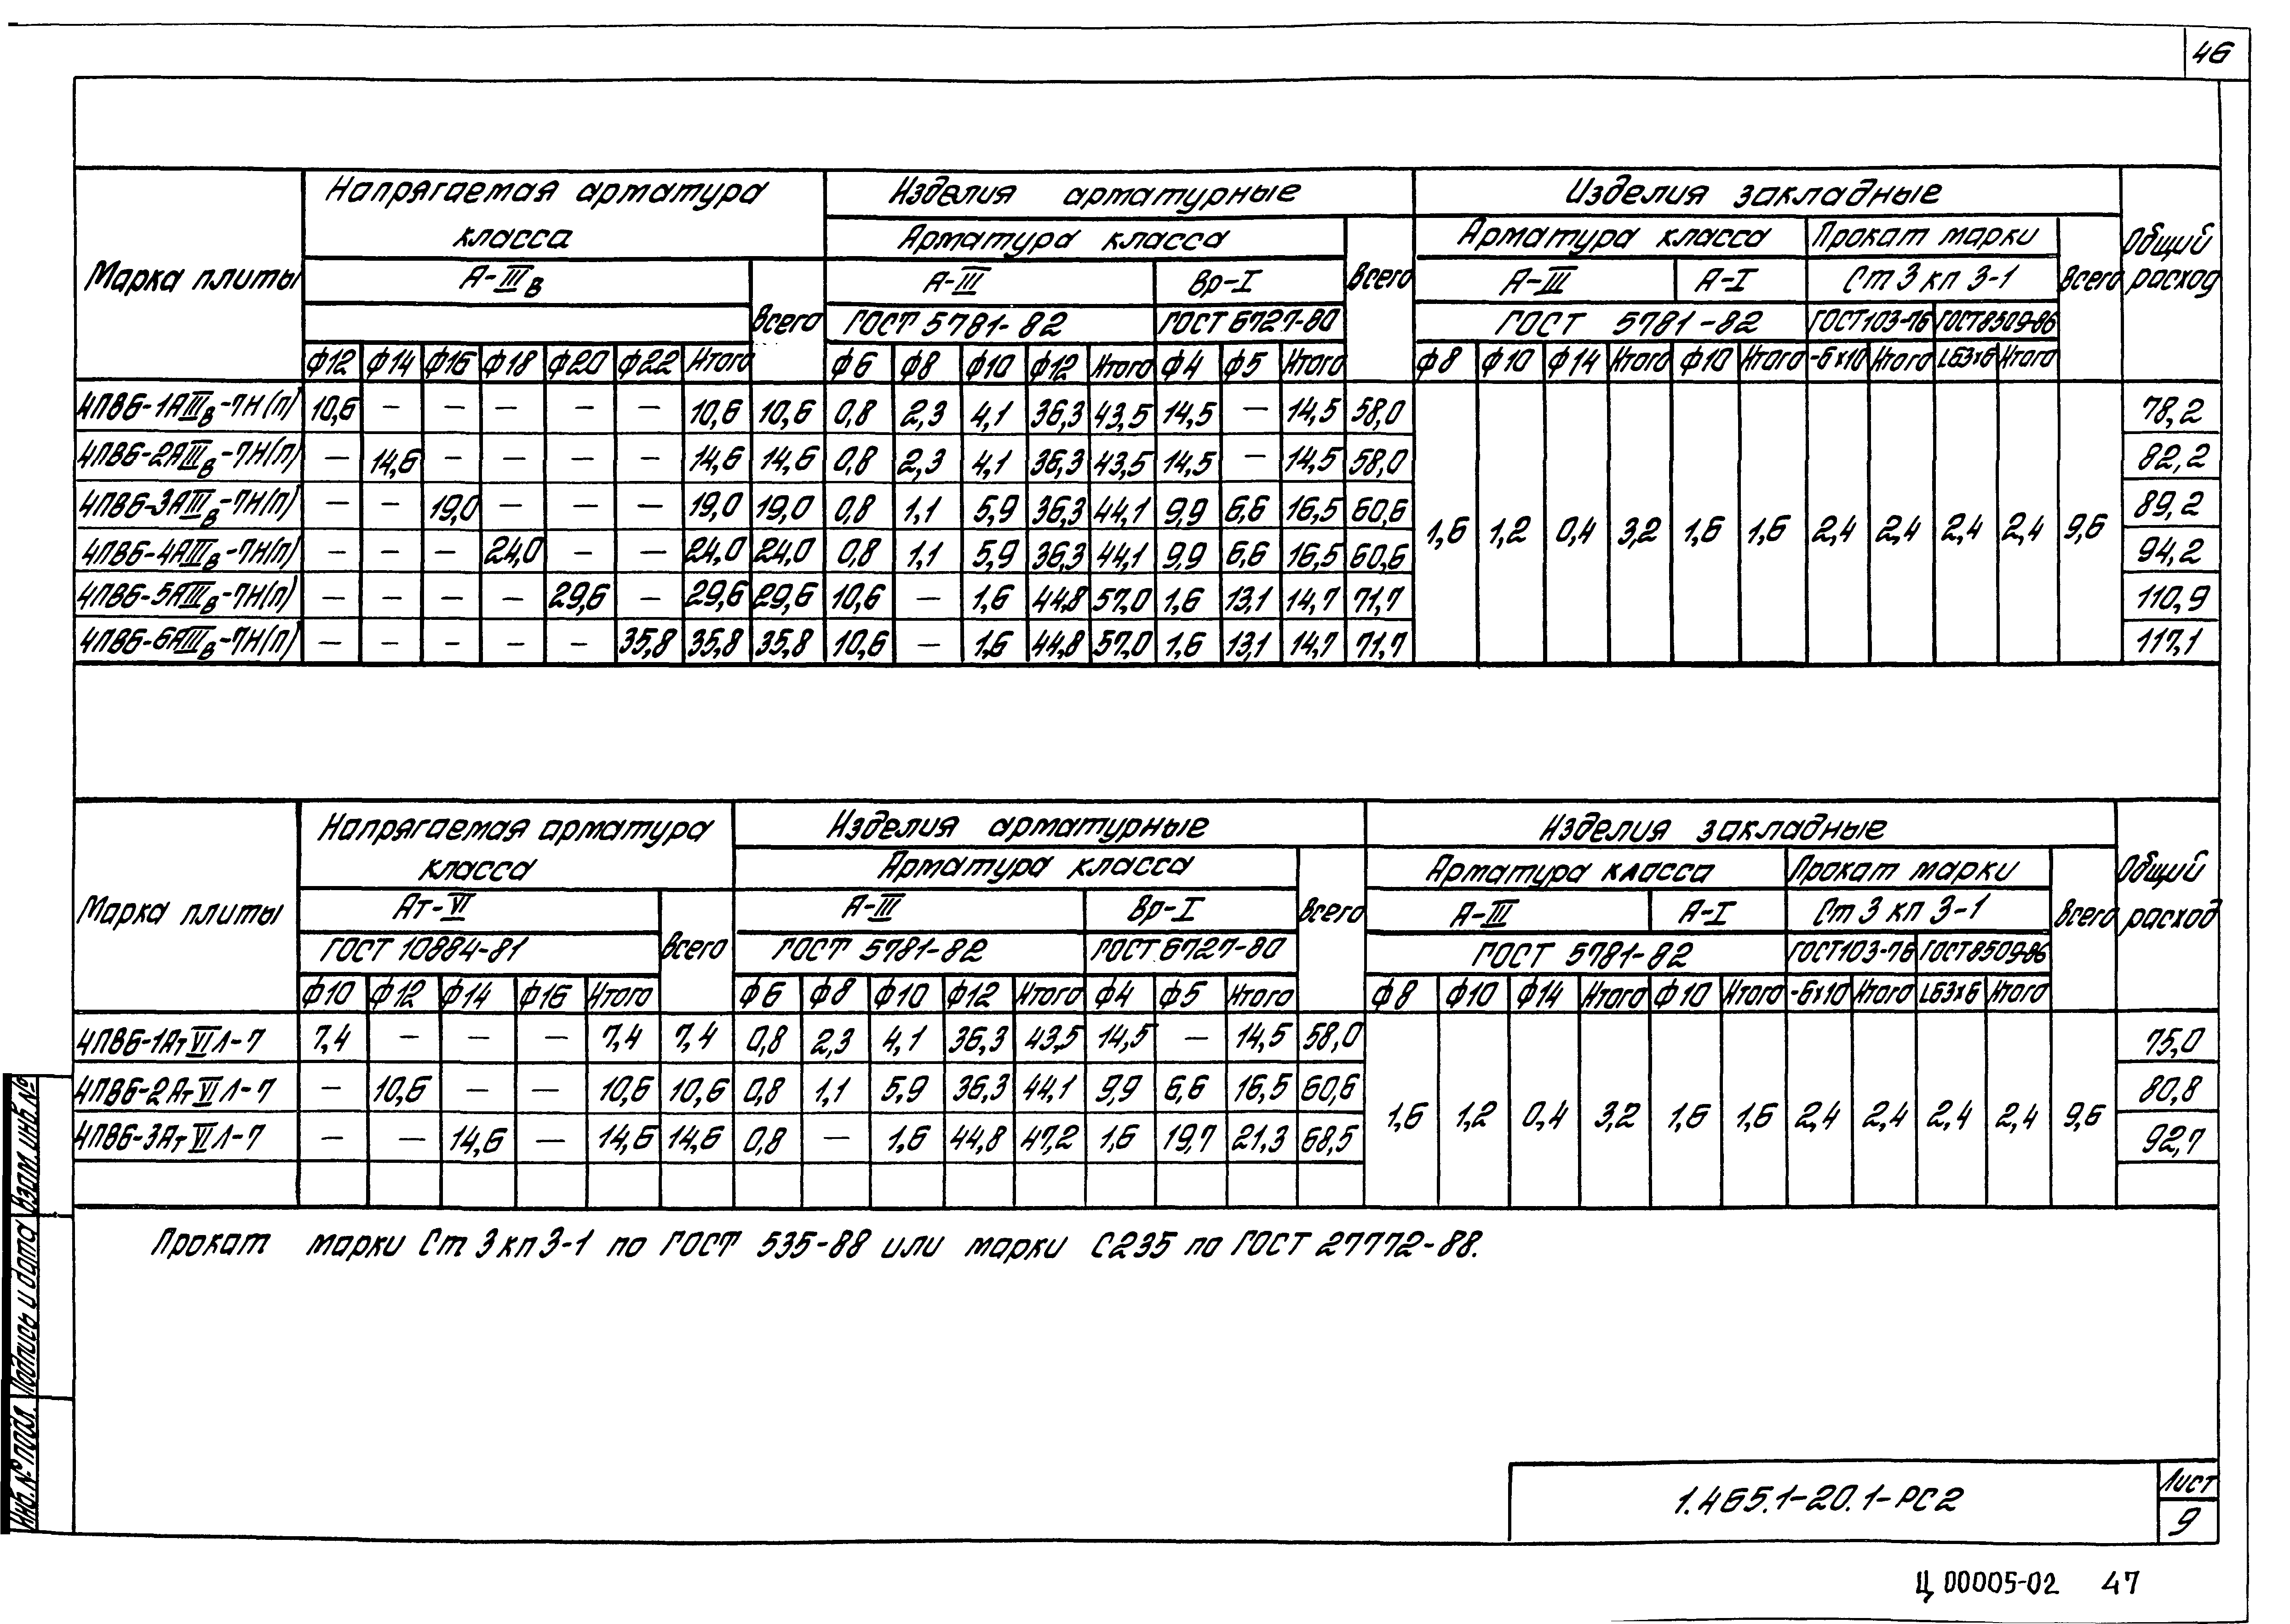 46
Марка плиты Напрягаемая арматура класса Изделия арматурные Изделия закладные Общий расход
Арматура класса Всего Арматура класса Прокат марки Всего
А-IIIв Всего А-III Вр-I А-III А-I Ст3кп3-1
ГОСТ 5781-82 ГОСТ 6727-80 ГОСТ 5781-82 ГОСТ103-76 ГОСТ8509-86
Ф12 Ф14 Ф16 Ф18 Ф20 Ф22 Итого Ф6 Ф8 Ф10 Ф12 Итого Ф4 Ф5 Итого Ф8 Ф10 Ф14 Итого Ф10 Итого -6х10 Итого L63х6 Итого
4ПВ6-1АIIIв-7Н(П) 10,6 — — — — — 10,6 10,6 0,8 2,3 4,1 36,3 43,5 14,5 — 14,5 58,0 78,2
4ПВ6-2АIIIв-7Н(П) — 14,6 — — — — 14,6 14,6 0,8 2,3 4,1 36,3 43,5 14,5 — 14,5 58,0 82,2
4ПВ6-3АIIIв-7Н(П) — — 19,0 — — — 19,0 19,0 0,8 1,1 5,9 36,3 44,1 9,9 6,6 16,5 60,6 89,2
1,6 1,2 0,4 3,2 1,6 1,6 2,4 2,4 2,4 2,4 9,6
4ПВ6-4АIIIв-7Н(П) — — — 24,0 — — 24,0 24,0 0,8 1,1 5,9 36,3 44,1 9,9 6,6 16,5 60,6 94,2
4ПВ6-5АIIIв-7Н(П) — — — — 29,6 — 29,6 29,6 10,6 — 1,6 44,8 57,0 1,6 13,1 14,7 71,7 110,9
4ПВ6-6АIIIв-7Н(П) — — — — — 35,8 35,8 35,8 10,6 — 1,6 44,8 57,0 1,6 13,1 14,7 71,7 117,1
Марка плиты Напрягаемая арматура класса Изделия арматурные Изделия закладные Общий расход
Арматура класса Всего Арматура класса Прокат марки Всего
Ат-VI Всего А-III Вр-I А-III А-I Ст3кп3-1
ГОСТ 10884-81 ГОСТ 5781-82 ГОСТ 6727-80 ГОСТ 5781-82 ГОСТ103-76 ГОСТ8509-86
Ф10 Ф12 Ф14 Ф16 Итого Ф6 Ф8 Ф10 Ф12 Итого Ф4 Ф5 Итого Ф8 Ф10 Ф14 Итого Ф10 Итого -6х10 Итого L63х6 Итого
4ПВ6-1АтVIЛ-7 7,4 — — — 7,4 7,4 0,8 2,3 4,1 36,3 43,5 14,5 — 14,5 58,0 75,0
4ПВ6-2АтVIЛ-7 — 10,6 — — 10,6 10,6 0,8 1,1 5,9 36,3 44,1 9,9 6,6 16,5 60,6 80,8
1,6 1,2 0,4 3,2 1,6 1,6 2,4 2,4 2,4 2,4 9,6
4ПВ6-3АтVIЛ-7 — — 14,6 — 14,6 14,6 0,8 — 1,6 44,8 47,2 1,6 19,7 21,3 68,5 92,7
Прокат марки Ст3кп3-1 по ГОСТ 535-88 или марки С235 по ГОСТ 27772-88.
Взам. инв. №
Подпись и дата
Инв. № подл.
1.465.1-20.1-РС2
Лист
9
Ц 00005-02 47